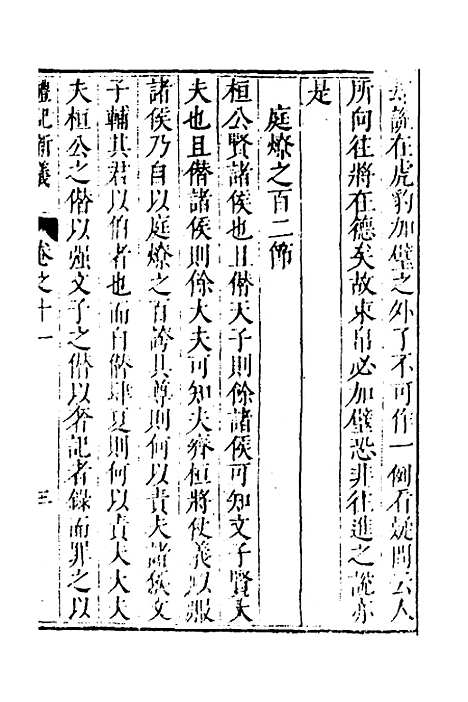 說在虎豹加璧之外了不可作一例看疑問云人
所向往將在德矣故束帛必加璧恐非往進之說亦
是
庭燎之百二節
桓公賢諸侯也且僭天子則餘諸侯可知文子賢大
夫也且僭諸侯則餘大夫可知夫齊桓將仗義以服
諸侯乃自以庭燎之百誇其尊則何以責夫諸侯文
子輔其君以伯者也而自僭肆夏則何以責夫大夫
夫桓公之僭以強文子之僭以奢記者錄而罪之以
禮記新義 卷之十一 三